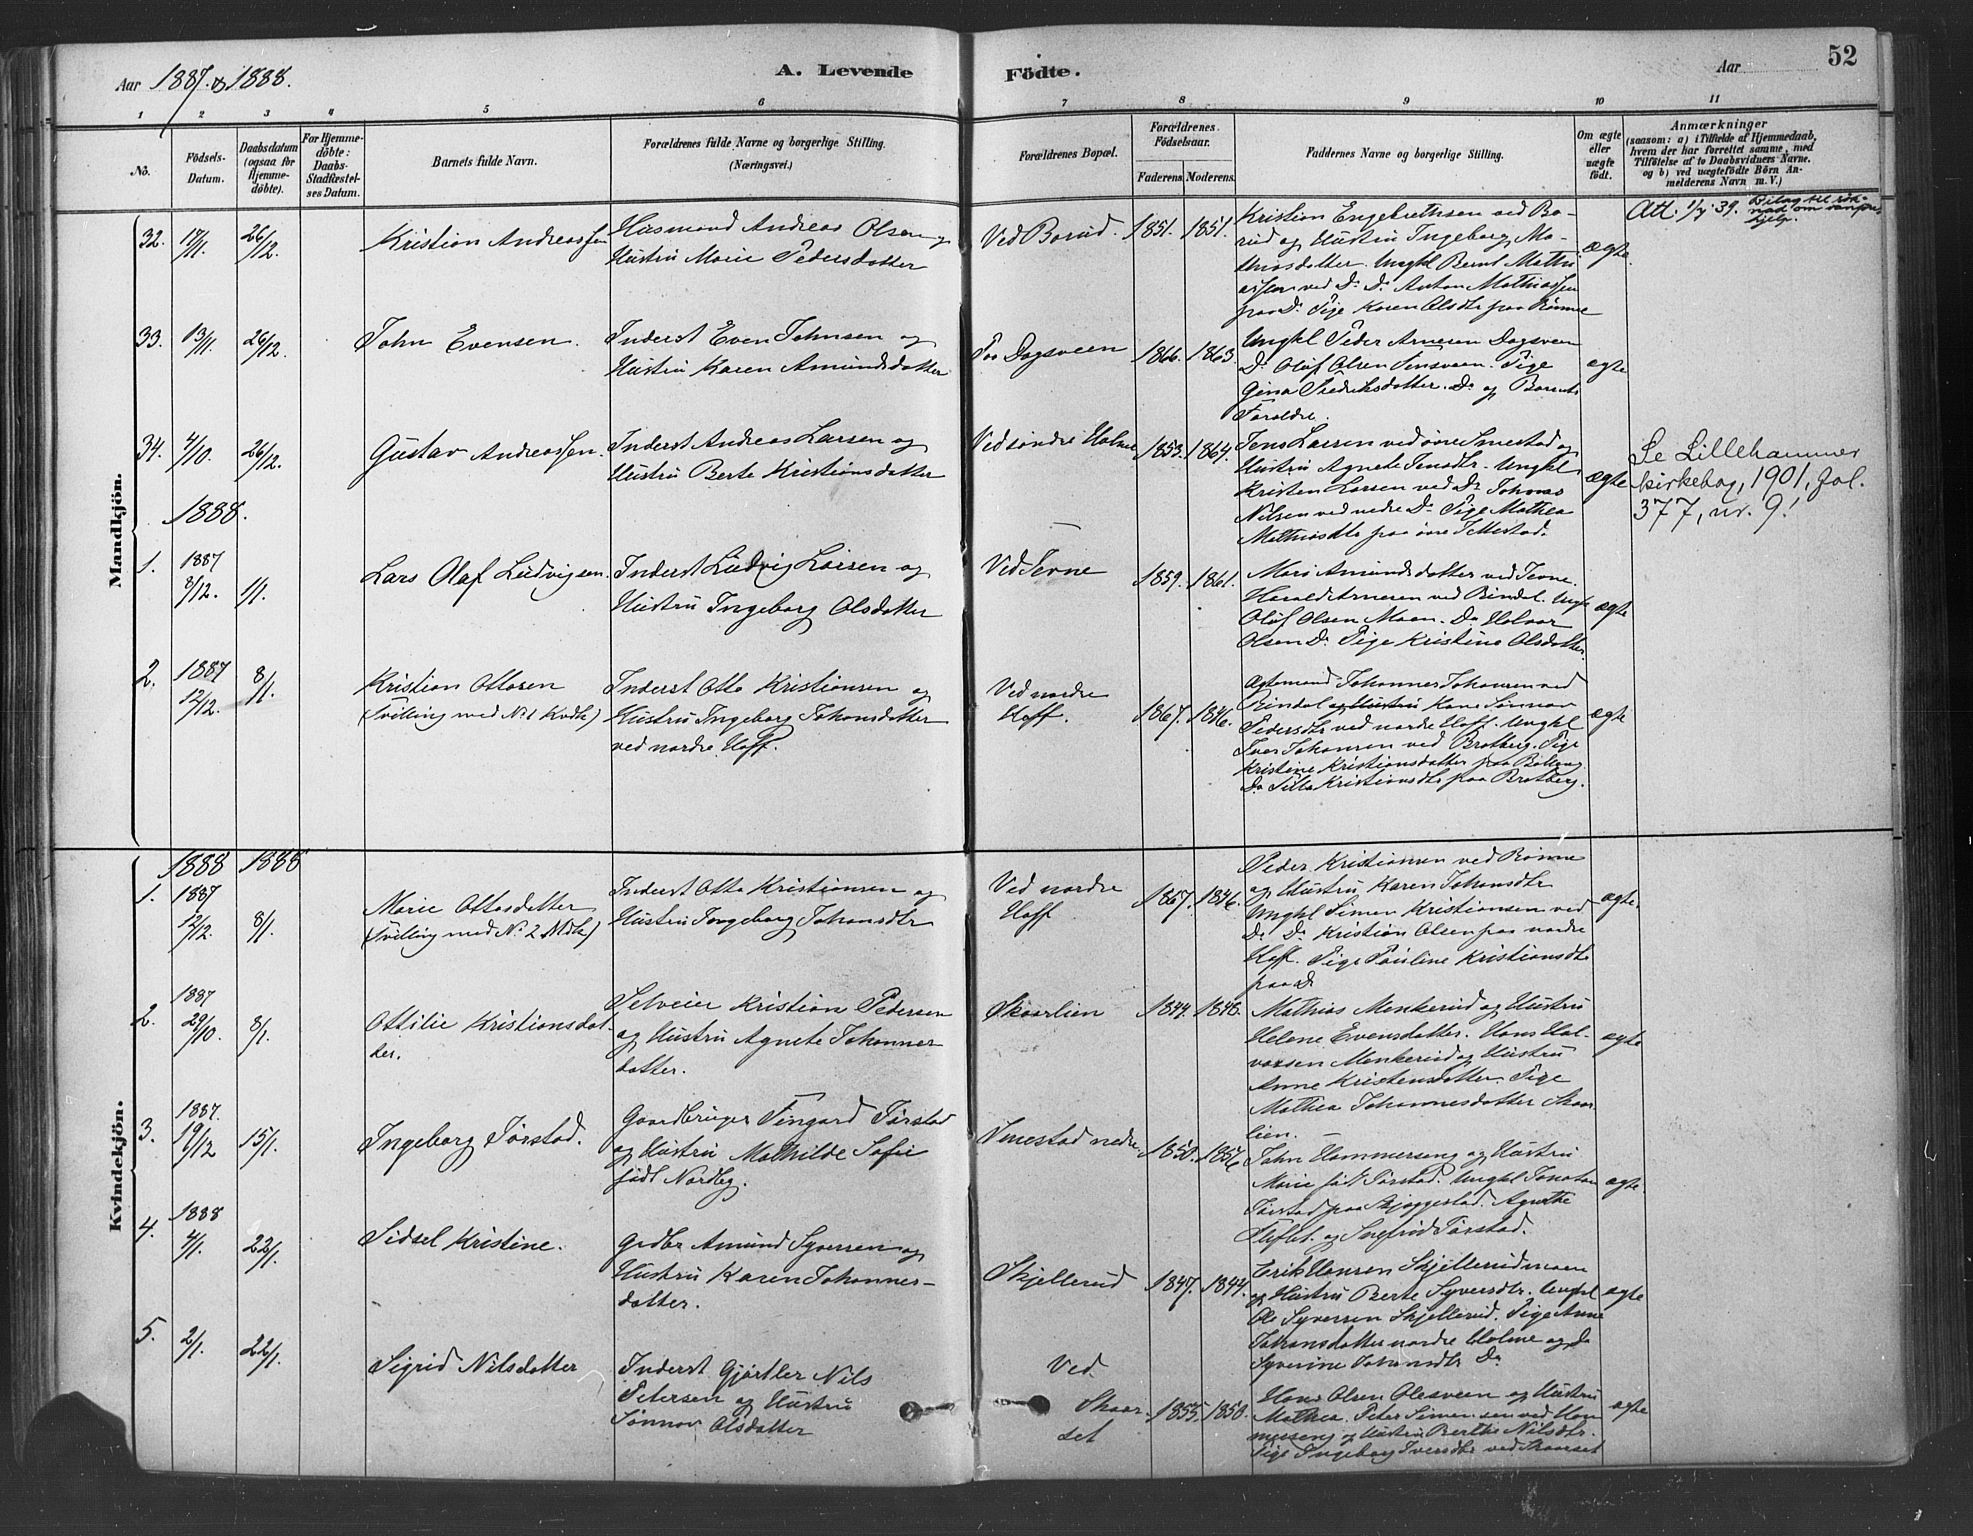 Aar 1887. & 1888.
A. Levende Fødte.
Aar
52
1 2 3 4 5 6 7 8 9 10 11
No.
Födsels-Datum.
Daabsdatum (ogsaa for Hjemme-döbte).
For Hjemme-döbte: Daabs-Stadfæstel-ses Datum.
Barnets fulde Navn.
Forældrenes fulde Navne og borgerlige Stilling.
(Næringsvei.)
Forældrenes Bopæl.
Forældrenes Födselsaar.
Faderens. Moderens.
Faddernes Navne og borgerlige Stilling.
Om ægte eller uægte födt.
Anmærkninger
(saasom: a) i Tilfælde af Hjemmedaab, hvem der har forrettet samme, med Tilföielse af to Daabsvidners Navne. og b) ved uægtefödte Börn An-melderens Navn m. V.)
Mandkjön.
32. 17/11. 26/12. Kristian Andreassen
Husmand Andreas Olsen og
Hustru Marie Pedersdatter
Ved Borud. 1851. 1851.
Kristian Engebrethsen ved Bo-
rud og Hustru Ingeborg Ma-
thiasdatter. Ungkl Bernt Mathi-
assen ved Do Do Anton Mathiassen
paa Do Pige Karen Olsdtr paa Rønne
ægte.
Att. 1/7 39.
33. 13/11. 26/12. John Evensen.
Inderst Even Johnsen og
Hustru Karen Amundsdatter
Paa Dagsveen 1866. 1863.
Ungkl Peder Arnesen Dagsveen
Do Oluf Olsen Jensveen. Pige
Gina Fredriksdatter. Do og Barnets
Forældre.
ægte
34. 4/10. 26/12. Gustav Andreassen.
Inderst Andreas Larsen og
Hustru Berte Kristiansdatter
Ved søndre Holme 1853. 1864.
Jens Larsen ved øvre Smestad og
Hustru Agnete Jensdtr. Ungkl
Kristen Larsen ved Do Johnas
Nilsen ved nedre Do Pige Mathea
Mathiasdtr paa øvre Jettestad.
ægte
Se Lillehammer
kirkebog, 1901, fol.
377, nr. 9!
1888.
1. 1887 8/12. 1/1. Lars Olaf Ludvigsen.
Inderst Ludvig Larsen og
Hustru Ingeborg Olsdatter
Ved Jevne 1859. 1861.
Mari Amundsdatter ved Jevne.
Harald Arnesen ved Rindal. Ungk
Oluf Olsen Moen. Do Halvor
Olsen Do Pige Kristine Olsdatter.
ægte
2. 1887 12/12. 8/1. Kristian Ottosen
(tvilling med No 1 Kvdk)
Inderst Otto Kristiansen og
Hustru Ingeborg Johansdatter
ved nordre Hoff.
Ved nordre
Hoff. 1867. 1846.
Agtemand Johannes Johansen ved
Rindal og Hustru Kone Sønnov
Pedersdtr ved nordre Hoff. Ungkl
Iver Johansen ved Brotberg. Pige
Kristine Kristiansdatter paa
Do Silla Kristiansdtr paa Brotberg.
ægte
Kvindekjön.
1888 1888
1. 1887 12/12. 8/1. Marie Ottosdatter
(tvilling med No 2 Mdk)
Inderst Otto Kristiansen og
Hustru Ingeborg Johansdtr
Ved nordre
Hoff 1867. 1846.
Peder Kristiansen ved Rønne
og Hustru Karen Johansdtr
Ungkl Simen Kristiansen ved
Do Do Kristian Olsen paa nordre
Hoff. Pige Pauline Kristiansdtr
paa Do
ægte.
2. 1887 29/10. 8/1. Ottilie Kristiansdat-
ter.
Selveier Kristian Pedersen
og Hustru Agnete Johannes
datter.
Skaarlien 1844. 1848.
Mathias Menkerud og Hustru
Helene Evensdatter. Hans Hal-
vorsen Menkerud og Hustru
Anne Kristensdatter. Pige
Mathea Johannesdatter Skaar
lien.
ægte
3. 1887. 19/12 15/1. Ingeborg Tørstad.
Gaardbruger Fingard Tørstad
og Hustru Mathilde Sofie
født Nordleg.
Smestad nedre 1850. 1856
John Hammerseng og Hustru
Marie født Tørstad. Ungkl Jonatan
Tørstad paa Skjeggestad. Agnethe
Sleflet. og Ingfrid Tørstad.
ægte.
4. 1888 4/1. 22/1. Sidsel Kristine.
Grdbr Amund Syversen og
Hustru Karen Johannes-
datter.
Skjellerud 1847. 1844.
Erik Hansen Skjellerudmoen
og Hustru Berte Syversdtr. Ungkl
Ole Syversen Skjellerud. Pige Anne
Johansdatter nordre Holme og Do
Syverine Johansdtr Do
ægte
5. 2/1. 22/1. Sigrid Nilsdatter
Inderst Gjørtler Nils
Petersen og Hustru
Sønnov Olsdatter
Ved
Skaar
set 1855. 1850.
Hans Olsen Olesveen og Hustru
Mathea. Peter Simensen ved Ham
merseng og Hustru Berthe Nilsdtr.
Pige Ingeborg Iversdtr ved Skaarset
ægte